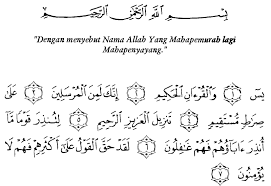 بِسْمِ اللَّهِ الرَّحْمَٰنِ الرَّحِيمِ
"Dengan menyebut Nama Allah Yang Mahapemurah lagi
Mahapenyayang."
يسٓ ۝١ وَالْقُرْءَانِ الْحَكِيمِ ۝٢ إِنَّكَ لَمِنَ الْمُرْسَلِينَ ۝٣ عَلَىٰ
صِرَاطٍ مُّسْتَقِيمٍ ۝٤ تَنزِيلَ الْعَزِيزِ الرَّحِيمِ ۝٥ لِتُنذِرَ قَوْمًا مَّا
أُنذِرَ ءَابَاؤُهُمْ فَهُمْ غَافِلُونَ ۝٦ لَقَدْ حَقَّ الْقَوْلُ عَلَىٰ أَكْثَرِهِمْ فَهُمْ لَا
يُؤْمِنُونَ ۝٧